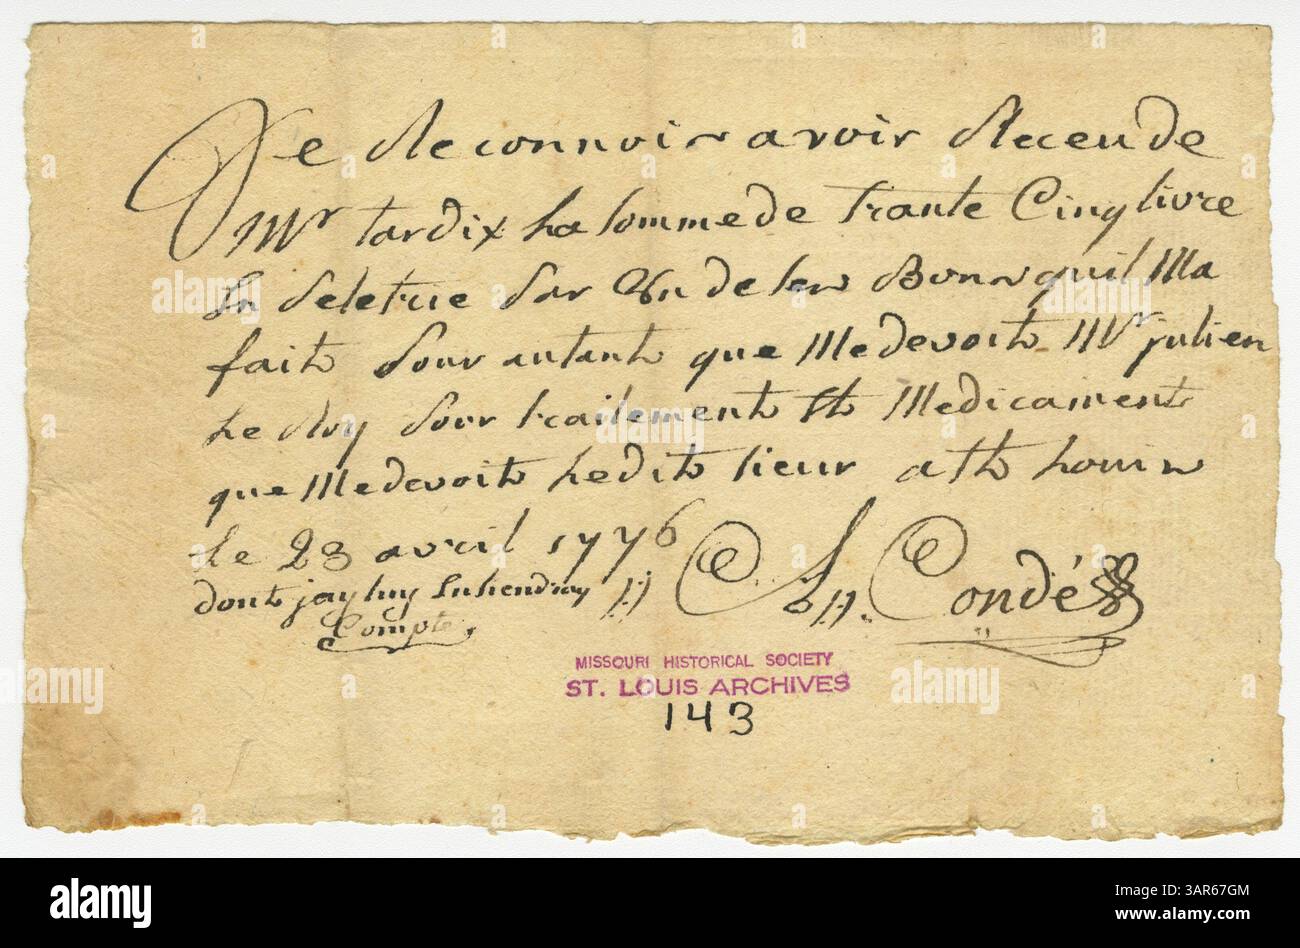 Je Reconnois avoir Receu de
Mr tardix La somme de trante Cinq livre
En peletrie par Un de ses Bons quil Ma
fait pour autant que Me devoit Mr julien
Le Roy pour traitement Et Medicament
que Me devoit Ledit sieur a St Louis
le 23 avril 1776
dont jay luy Entiendray
Compte
Condé
MISSOURI HISTORICAL SOCIETY
ST. LOUIS ARCHIVES
143
alamy
Image ID: 3AR67GM
www.alamy.com